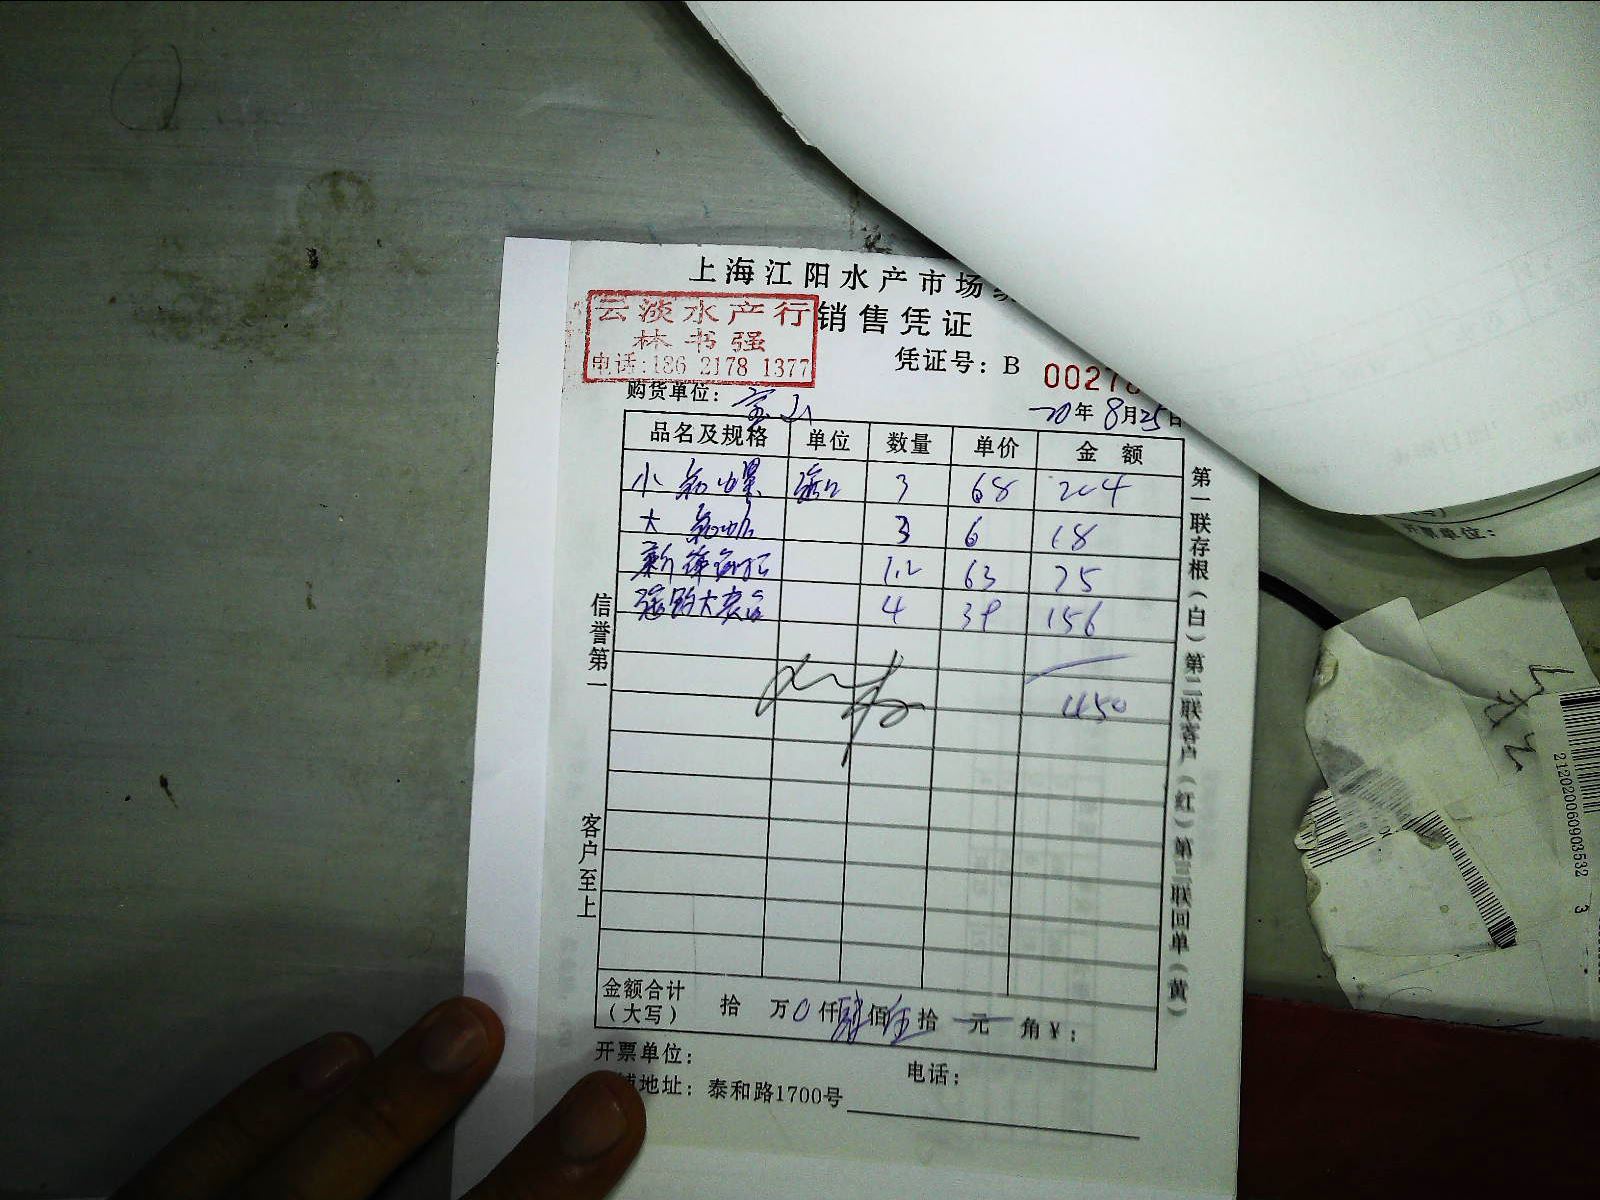 上海江阳水产市场
销售凭证
云淡水产行
林书强
电话:186 2178 1377
凭证号: B 0027
购货单位: 宝山
20年 8月25日
品名及规格 单位 数量 单价 金 额
小 3 68 204
大 3 6 18
新 1.2 63 75
4 39 156
450
信誉第一
客户至上
第一联存根(白) 第二联客户(红) 第三联回单(黄)
金额合计
(大写) 拾 万0仟肆佰伍拾 元 角¥:
开票单位: 电话:
地址: 泰和路1700号
开票单位:
212020060903532 3